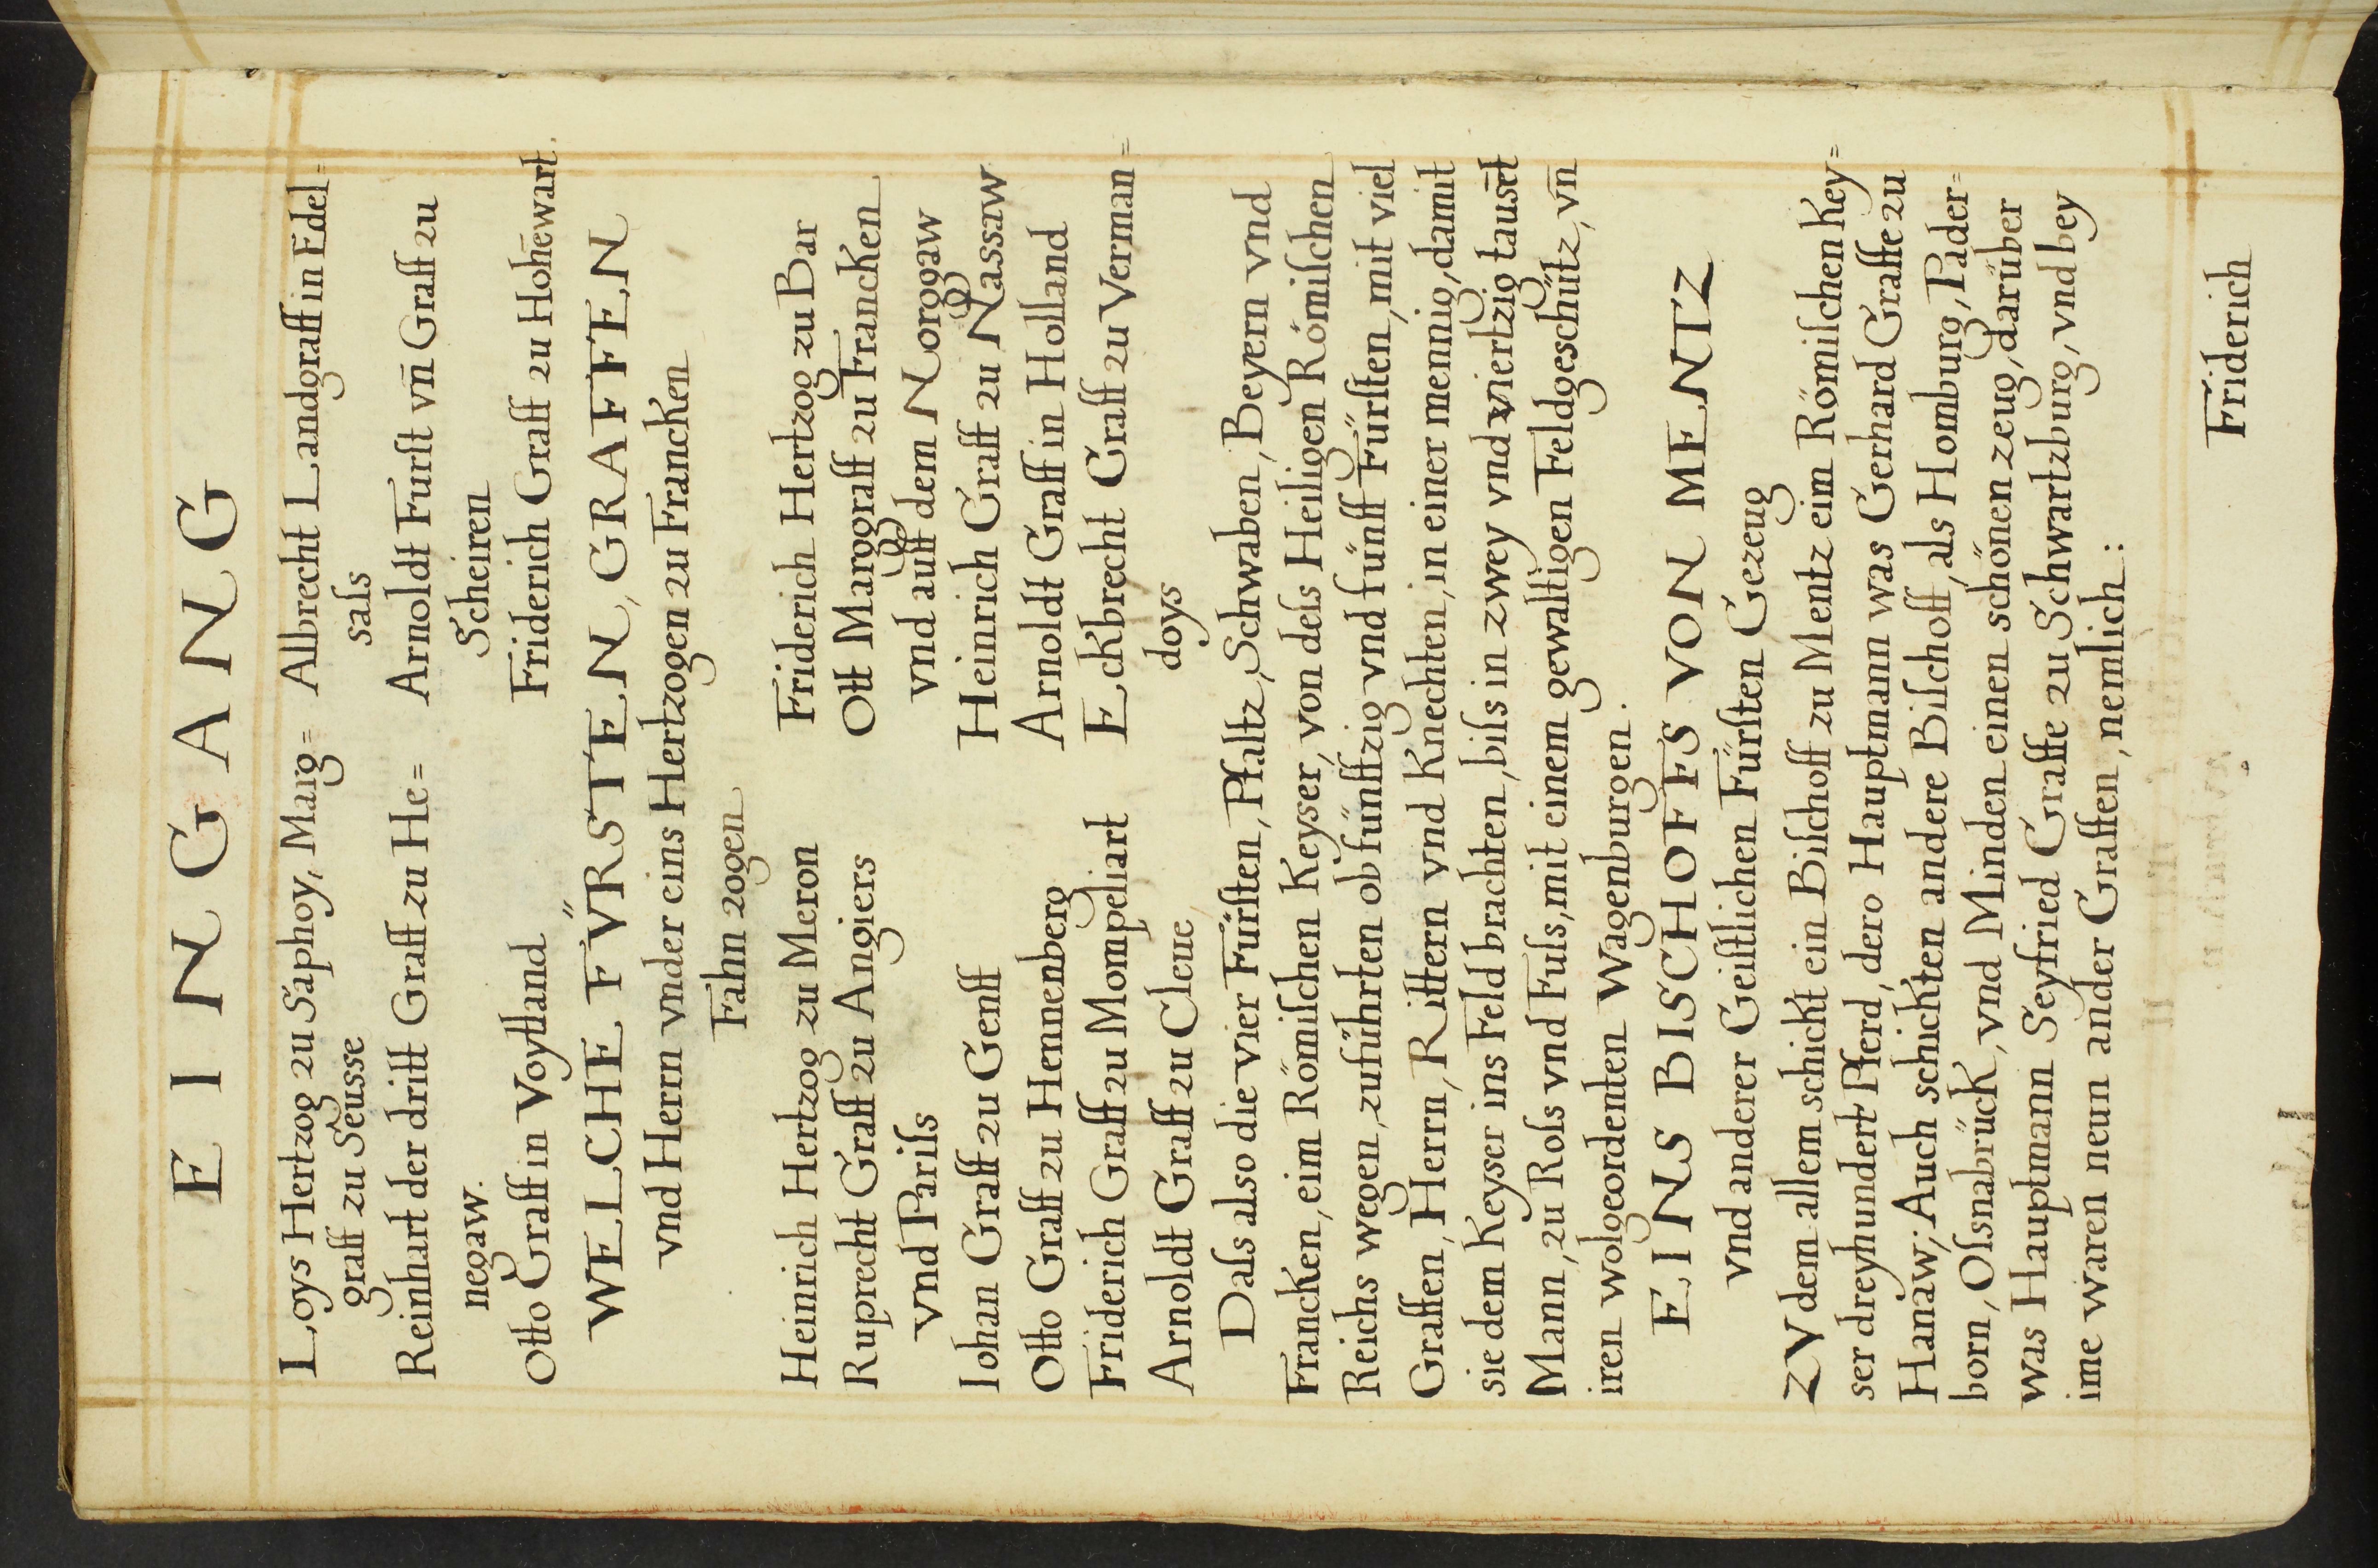 EINGANG
Loys Hertzog zu Saphoy, Marg=
graff zu Seusse
Reinhart der dritt Graff zu He=
negaw.
Otto Graff in Voytland
Albrecht Landgraff in Edel=
saſs
Arnoldt Furſt vn̄ Graff zu
Scheiren
Friderich Graff zu Hohēwart.
WELCHE FV̈RSTEN, GRAFFEN
vnd Herrn vnder eins Hertzogen zu Francken
Fahn zogen
Heinrich Hertzog zu Meron
Ruprecht Graff zu Angiers
vnd Pariſs
Iohan Graff zu Genff
Otto Graff zu Hennenberg
Friderich Graff zu Mompeliart
Arnoldt Graff zu Cleue
Friderich Hertzog zu Bar
Ott Marggraff zu Francken
vnd auff dem Norggaw
Heinrich Graff zu Nassaw
Arnoldt Graff in Holland
Eckbrecht Graff zu Verman=
doys
Daſs also die vier Fürſten, Pfaltz, Schwaben, Beyern vnd
Francken, eim Römiſchen Keyser, von deſs Heiligen Römiſchen
Reichs wegen, zuführten ob fünfftzig vnd fünff Fürſten, mit viel
Graffen, Herrn, Rittern vnd Knechten, in einer mennig, damit
sie dem Keyser ins Feld brachten, biſs in zwey vnd viertzig tausēt
Mann, zu Roſs vnd Fuſs, mit einem gewaltigen Feldgeschütz, vn̄
iren wolgeordenten Wagenburgen.
EINS BISCHOFFS VON MENTZ
vnd anderer Geiſtlichen Fürſten Gezeug
ZV dem allem schickt ein Biſchoff zu Mentz eim Römiſchen Key=
ser dreyhundert Pferd, dero Hauptmann was Gerhard Graffe zu
Hanaw; Auch schickten andere Biſchoff, als Homburg, Pader=
born, Oſsnabrück, vnd Minden einen schönen zeug, darüber
was Hauptmann Seyfried Graffe zu Schwartzburg, vnd bey
ime waren neun ander Graffen, nemlich:
Friderich